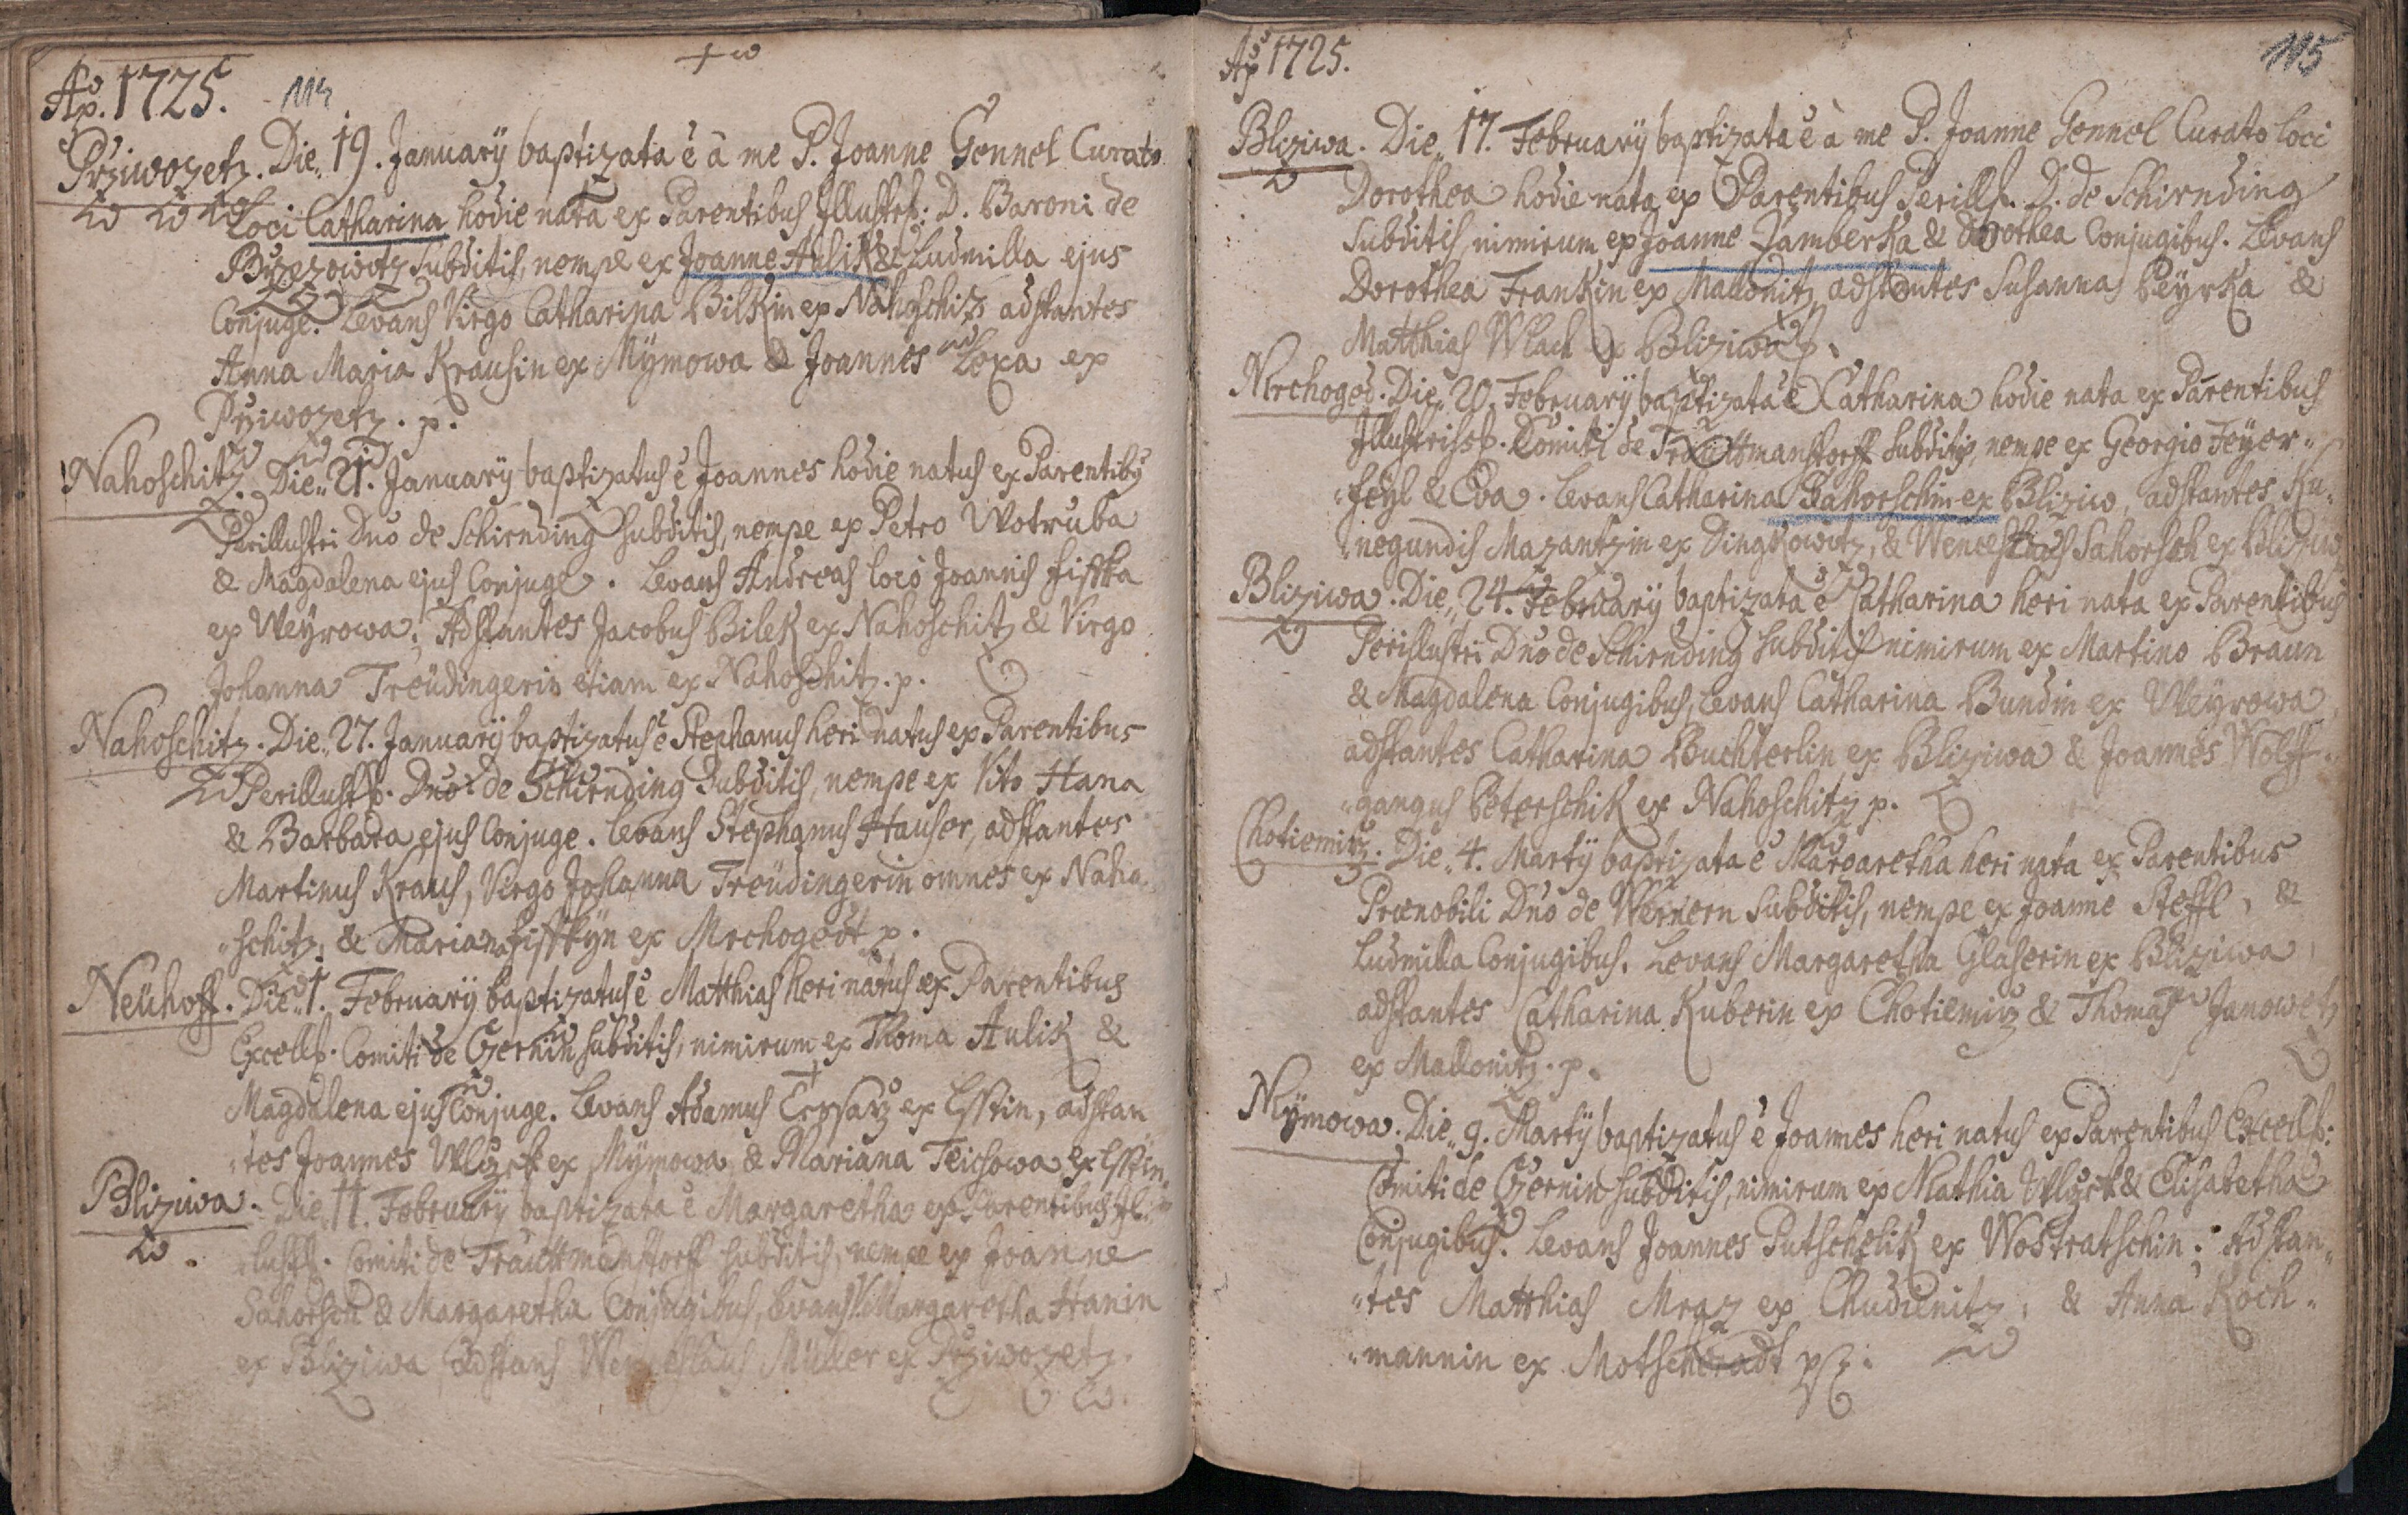 Ao. 1725. 114
Prziwozetz. Die 19. January baptizata e à me P. Joanne Gennel Curato
Loci Catharina hodie nata ex Parentibus Illustrss: D. Baroni de
Brzezowitz subditis, nempe ex Joanne Aulik & Ludmilla ejus
Conjuge. Levans Virgo Catharina Bilkin ex Nahoschitz adstantes
Anna Maria Krausin ex Mÿmowa & Joannes Loxa ex
Prziwozetz. p.
Nahoschitz. Die 21. January baptizatus e Joannes hodie natus ex Parentibus
Perillustri Dno de Schirnding subditis, nempe ex Petro Wotruba
& Magdalena ejus Conjuge. Levans Andreas loco Joannis Fisska
ex Weÿrowa; Adstantes Jacobus Bilek ex Nahoschitz & Virgo
Johanna Treüdingerin etiam ex Nahoschitz. p.
Nahoschitz. Die 27. January baptizatus e Stephanus heri natus ex Parentibus
Perillustrss. Dno de Schirnding Subditis, nempe ex Vito Hana
& Barbara ejus Conjuge. Levans Stephanus Hauser, adstantes
Martinus Kraus, Virgo Johanna Treüdingerin omnes ex Naho-
"schitz, & Mariana Fisskÿn ex Mrchogedt p.
Neühoff. Die 1. February baptizatus e Matthias heri natus ex Parentibus
Excellss. Comiti de Czernin subditis, nimirum ex Thoma Aulik &
Magdalena ejus Conjuge. Levans Adamus ex Esstin, adstan
"tes Joannes Wlczek ex Mÿmowa & Mariana Teichowa ex Esstin.
Bliziwa. Die 11. February baptizata e Margaretha ex Parentibus Il-
lustss. Comiti de Trauttmanstorff subditis, nempe ex Joanne
Sahorsch & Margaretha Conjugibus, Levans Margaretha Hanin
ex Bliziwa adstans Wenceslaus Müller ex Prziwozetz.
Ao 1725. 115
Bliziwa. Die 17. February baptizata e à me P. Joanne Gennel Curato loci
Dorothea hodie nata ex Parentibus Perillss. D. de Schirnding
subditis, nimirum ex Joanne Jamberka & Dorothea Conjugibus. Levans
Dorothea Frankin ex Mallonitz adstantes Susanna Peÿrka &
Matthias Wlach ex Bliziwa p.
Mrchoged. Die 20. February baptizata e Catharina hodie nata ex Parentibus
Illustrisss. Comiti de Trauttmanstorff subditis, nempe ex Georgio Feyer-
"feyl & Eva. Levans Catharina Sahorschin ex Bliziw, adstantes Ku-
"negundis Mazantzin ex Dingkowitz, & Wenceslaus Sahorsch ex Bliziw
Bliziwa. Die 24. February baptizata e Catharina heri nata ex Parentibus
Perillustri Dno de Schirnding subditis nimirum ex Martino Braun
& Magdalena Conjugibus, Levans Catharina Bundin ex Weÿrowa
adstantes Catharina Buchterlin ex Bliziwa & Joannes Wolff-
"gangus Peterschik ex Nahoschitz p.
Chotiemirz. Die 4. Martÿ baptizata e Margaretha heri nata ex Parentibus
Prænobili Dno de Wernern Subditis, nempe ex Joanne Steffl, &
Ludmilla Conjugibus. Levans Margaretha Glaserin ex Bliziwa,
adstantes Catharina Kuberin ex Chotiemirz & Thomas Janowetz
ex Mallonitz. p.
Mÿmowa. Die 9. Martÿ baptizatus e Joannes heri natus ex Parentibus Excellss:
Comiti de Czernin subditis, nimirum ex Mathia Wlczek & Elisabetha
Conjugibus. Levans Joannes Putschelik ex Wostratschin; Adstan-
"tes Matthias Mraz ex Chudenitz, & Anna Koch-
"mannin ex Motscheradt